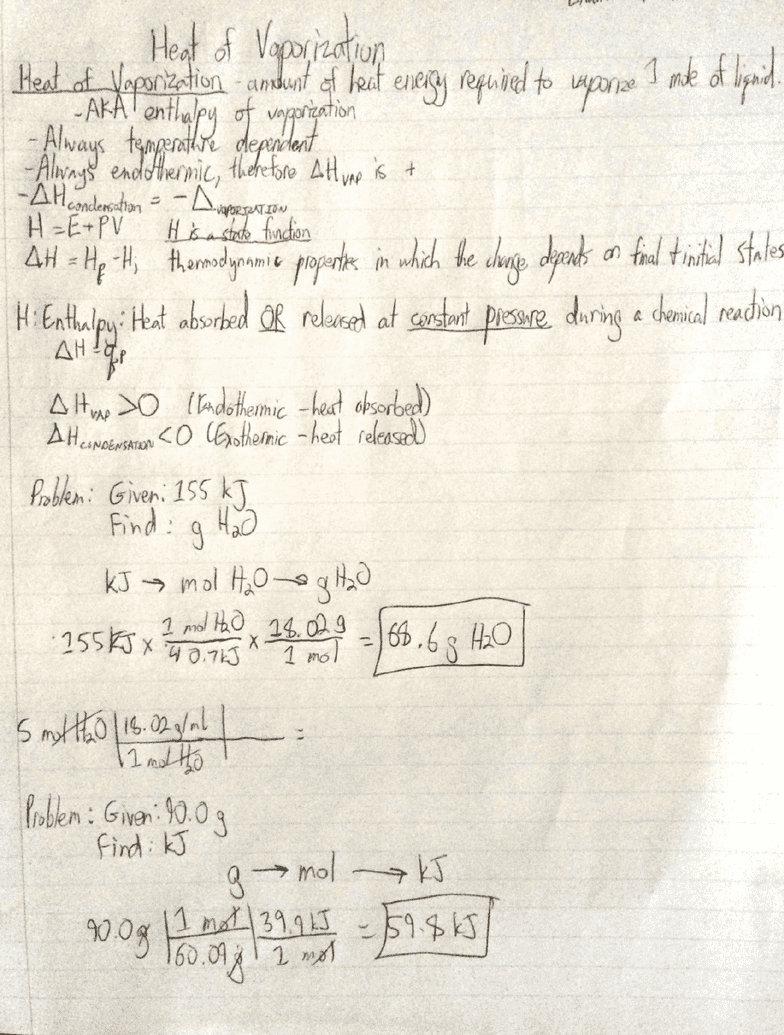 Heat of Vaporization
Heat of Vaporization - amount of heat energy required to vaporize 1 mole of liquid.
-AKA enthalpy of vaporization
- Always temperature dependent
- Always endothermic, therefore ΔH VAP is +
-ΔH condensation = -Δ VAPORIZATION
H = E + PV H is a state function
ΔH = Hf - Hi thermodynamic properties in which the change depends on final + initial states
H: Enthalpy: Heat absorbed OR released at constant pressure during a chemical reaction
ΔH = qp
ΔH VAP > 0 (Endothermic - heat absorbed)
ΔH CONDENSATION < 0 (Exothermic - heat released)
Problem: Given: 155 kJ
Find: g H₂O
kJ → mol H₂O → g H₂O
155 kJ x 1 mol H₂O / 40.7 kJ x 18.02 g / 1 mol = 68.6 g H₂O
5 mol H₂O | 18.02 g/ml / 1 mol H₂O | =
Problem: Given: 90.0 g
Find: kJ
g → mol → kJ
90.0 g | 1 mol / 60.09 g | 39.9 kJ / 1 mol = 59.8 kJ